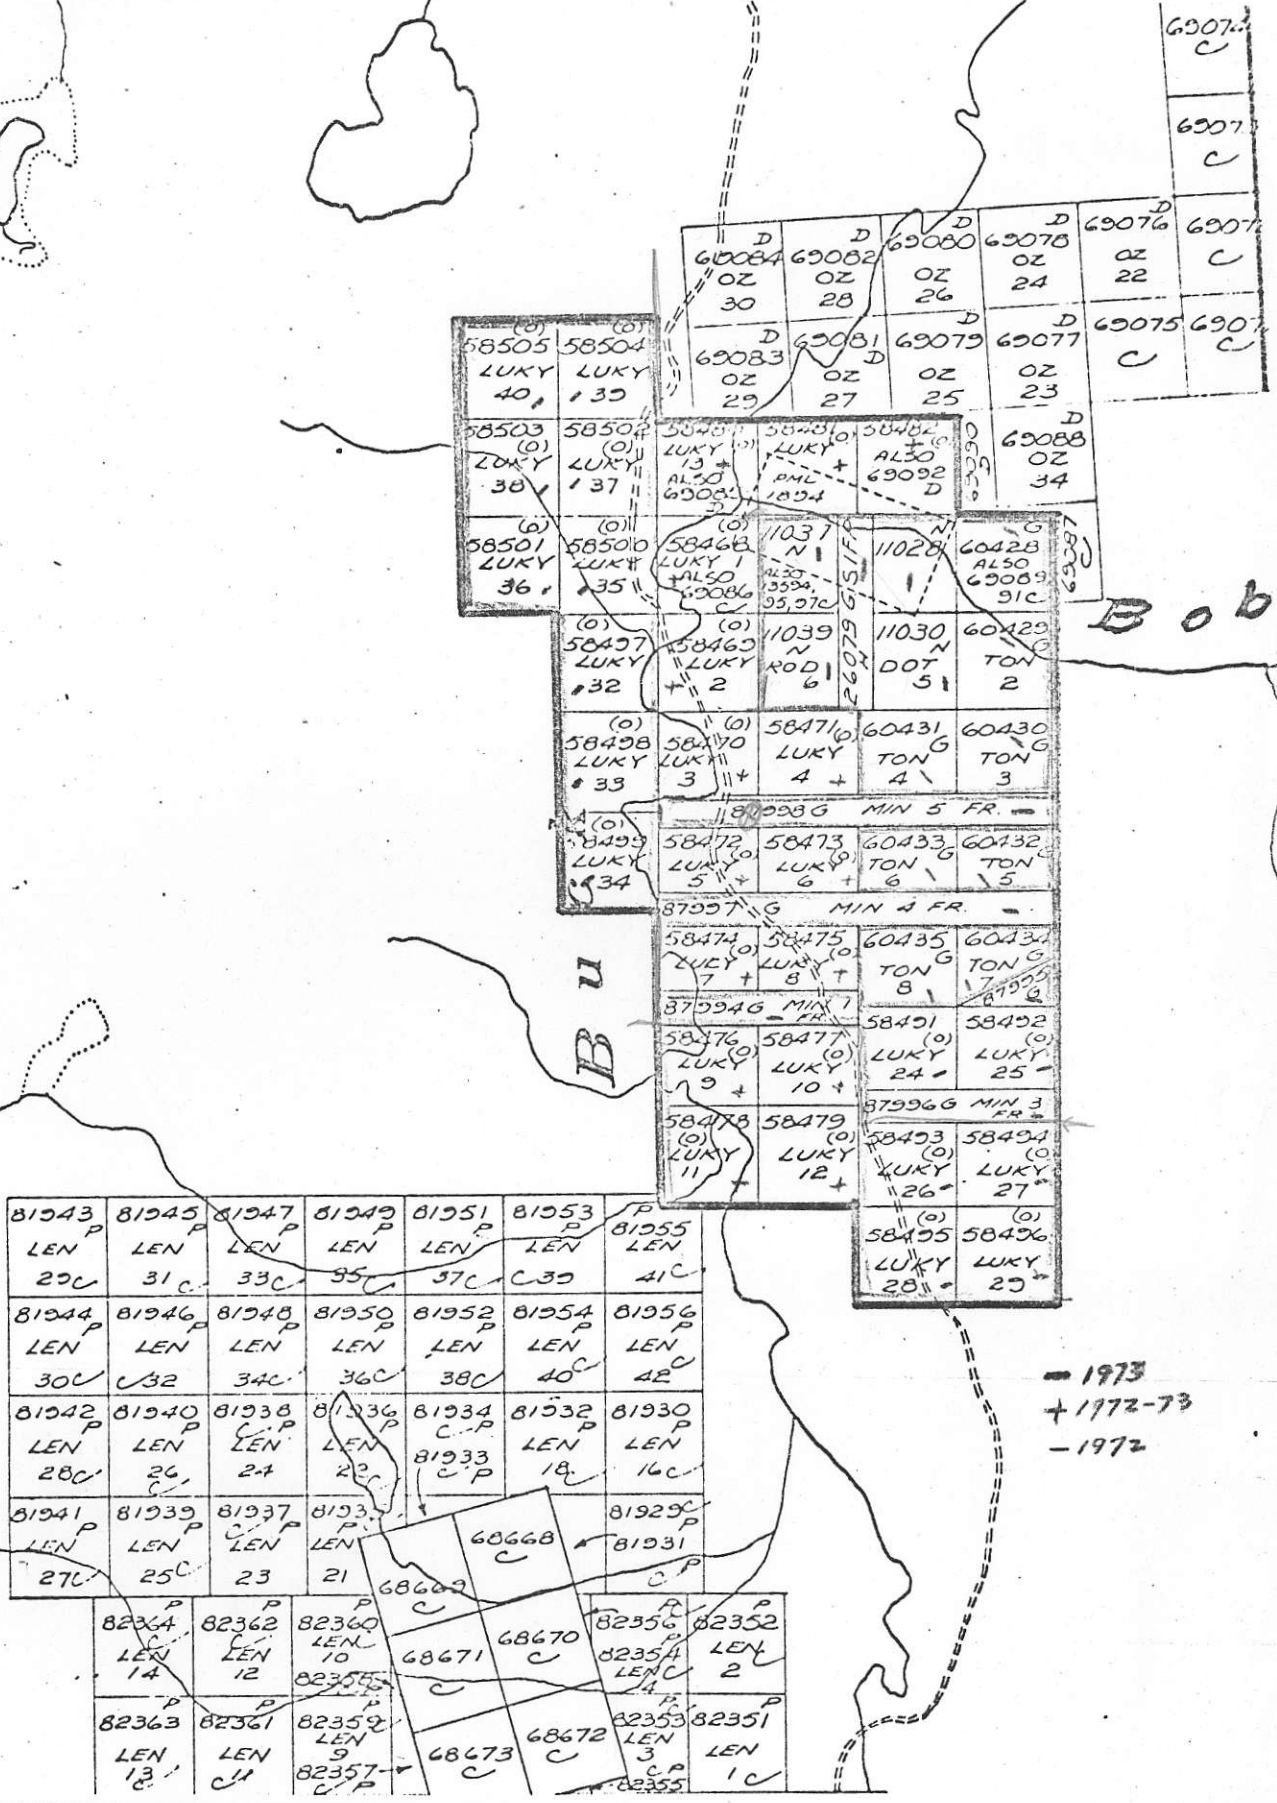 C
C
D
69084
OZ
30
D
69082
OZ
28
D
69080
OZ
26
D
69078
OZ
24
D
69076
OZ
22
C
D
69083
OZ
29
69081
D
OZ
27
D
69079
OZ
25
D
69077
OZ
23
69075
C
C
D
69088
OZ
34
69090
D
69087
C
(0)
58505
LUKY
40
(0)
58504
LUKY
39
58503
(0)
LUKY
38
58502
(0)
LUKY
37
LUKY
13 +
ALSO
D
58481
(0)
LUKY
+
PML
1894
58482
+ (0)
ALSO
69092
D
(0)
58501
LUKY
36
(0)
58500
LUKY
35
(0)
58468
LUKY 1
+ALSO
69086
C
11037
N
ALSO
95,97C
26079 GSIFR
N
N
11028
G
60428
ALSO
69089
91C
Bob
(0)
58497
LUKY
32
(0)
58469
LUKY
+ 2
11039
N
ROD
6
11030
N
DOT
5
60429
G
TON
2
(0)
58498
LUKY
33
(0)
58470
LUKY
3 +
58471
(0)
LUKY
4 +
60431
G
TON
4
60430
G
TON
3
998G MIN 5 FR. -
(0)
58499
LUKY
34
58472
(0)
LUKY
5 +
58473
(0)
LUKY
6 +
60433
G
TON
6
60432
G
TON
5
87997 G MIN 4 FR. -
58474
(0)
LUKY
7 +
58475
(0)
LUKY
8 +
60435
G
TON
8
60434
G
TON
7
87995
G
87994G MIN 1
- FR.
58476
(0)
LUKY
9 +
58477
(0)
LUKY
10 +
58491
(0)
LUKY
24 -
58492
(0)
LUKY
25 -
87996G MIN 3
FR -
58478
(0)
LUKY
11 +
58479
(0)
LUKY
12 +
58493
(0)
LUKY
26 -
58494
(0)
LUKY
27 -
(0)
58495
LUKY
28 -
(0)
58496
LUKY
29 -
Bu
- 1973
+ 1972-73
- 1972
81943
P
LEN
29C
81945
P
LEN
31 C
81947
P
LEN
33C
81949
P
LEN
35C
81951
P
LEN
37C
81953
P
LEN
C39
P
81955
LEN
41C
81944
P
LEN
30C
81946
P
LEN
C32
81948
P
LEN
34C
81950
P
LEN
36C
81952
P
LEN
38C
81954
P
LEN
40C
81956
P
LEN
C
42
81942
P
LEN
28C
81940
P
LEN
26
C
81938
C P
LEN
24
81936
P
LEN
22C
81934
C P
81933
C P
81932
P
LEN
18C
81930
P
LEN
16C
81941
P
LEN
27C
81939
P
LEN
25C
81937
C P
LEN
23
P
LEN
21
81929C
P
81931
C P
68668
C
68669
C
68671
C
68670
C
68673
C
68672
C
P
82364
C
LEN
14
P
82362
C
LEN
12
P
82360
LEN
10
P
82356
C
P
82354
LEN C
4
P
82352
LEN
C
2
P
82363
LEN
13
C
P
82361
LEN
11
C
P
82359
C
LEN
9
82357
C P
P
82353
LEN
3
C P
82355
P
82351
LEN
1 C